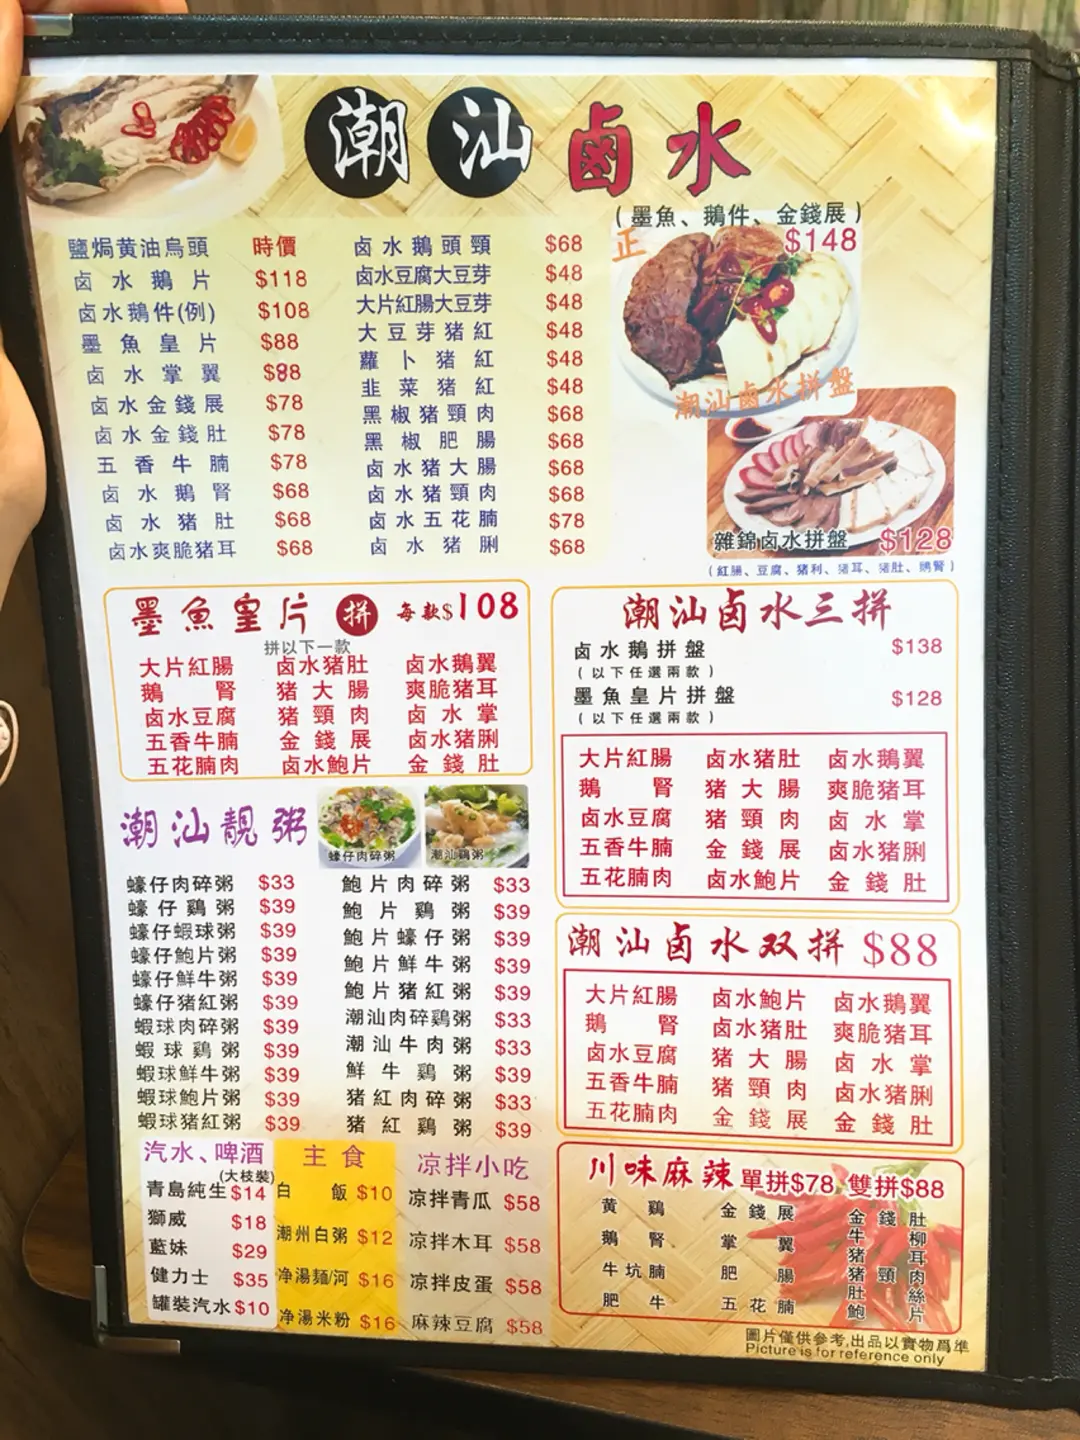 潮汕卤水
鹽焗黄油烏頭 時價
卤水鵝片 $118
卤水鵝件(例) $108
墨魚皇片 $88
卤水掌翼 $88
卤水金錢展 $78
卤水金錢肚 $78
五香牛腩 $78
卤水鵝腎 $68
卤水猪肚 $68
卤水爽脆猪耳 $68
卤水鵝頭頸 $68
卤水豆腐大豆芽 $48
大片紅腸大豆芽 $48
大豆芽猪紅 $48
蘿卜猪紅 $48
韭菜猪紅 $48
黑椒猪頸肉 $68
黑椒肥腸 $68
卤水猪大腸 $68
卤水猪頸肉 $68
卤水五花腩 $78
卤水猪脷 $68
(墨魚、鵝件、金錢展)
正 $148
潮汕卤水拼盤
雜錦卤水拼盤 $128
(紅腸、豆腐、猪利、猪耳、猪肚、鵝腎)
墨魚皇片 拼 每款$108
拼以下一款
大片紅腸 卤水猪肚 卤水鵝翼
鵝腎 猪大腸 爽脆猪耳
卤水豆腐 猪頸肉 卤水掌
五香牛腩 金錢展 卤水猪脷
五花腩肉 卤水鮑片 金錢肚
潮汕卤水三拼
卤水鵝拼盤 $138
(以下任選兩款)
墨魚皇片拼盤 $128
(以下任選兩款)
大片紅腸 卤水猪肚 卤水鵝翼
鵝腎 猪大腸 爽脆猪耳
卤水豆腐 猪頸肉 卤水掌
五香牛腩 金錢展 卤水猪脷
五花腩肉 卤水鮑片 金錢肚
潮汕靚粥
蠔仔肉碎粥
潮汕鷄粥
蠔仔肉碎粥 $33
蠔仔鷄粥 $39
蠔仔蝦球粥 $39
蠔仔鮑片粥 $39
蠔仔鮮牛粥 $39
蠔仔猪紅粥 $39
蝦球肉碎粥 $39
蝦球鷄粥 $39
蝦球鮮牛粥 $39
蝦球鮑片粥 $39
蝦球猪紅粥 $39
鮑片肉碎粥 $33
鮑片鷄粥 $39
鮑片蠔仔粥 $39
鮑片鮮牛粥 $39
鮑片猪紅粥 $39
潮汕肉碎鷄粥 $33
潮汕牛肉粥 $33
鮮牛鷄粥 $39
猪紅肉碎粥 $33
猪紅鷄粥 $39
潮汕卤水双拼 $88
大片紅腸 卤水鮑片 卤水鵝翼
鵝腎 卤水猪肚 爽脆猪耳
卤水豆腐 猪大腸 卤水掌
五香牛腩 猪頸肉 卤水猪脷
五花腩肉 金錢展 金錢肚
汽水、啤酒
(大枝裝)
青島純生 $14
獅威 $18
藍妹 $29
健力士 $35
罐裝汽水 $10
主食
白飯 $10
潮州白粥 $12
净湯麵/河 $16
净湯米粉 $16
凉拌小吃
凉拌青瓜 $58
凉拌木耳 $58
凉拌皮蛋 $58
麻辣豆腐 $58
川味麻辣 單拼$78 雙拼$88
黄鷄 金錢展 金錢肚
鵝腎 掌翼 牛柳
牛坑腩 肥腸 猪耳
肥牛 五花腩 猪頸肉
猪肚絲
鮑片
圖片僅供參考,出品以實物爲準
Picture is for reference only